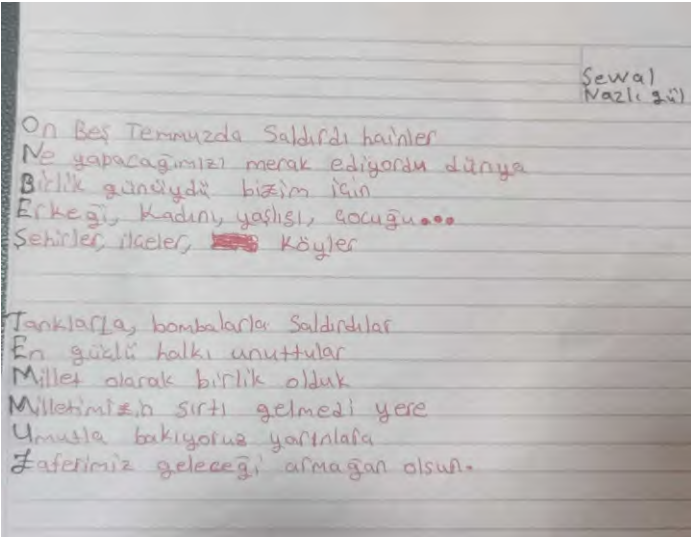 Şewal
Nazlı gül
On Beş Temmuzda Saldırdı hainler
Ne yapacağımızı merak ediyordu dünya
Birlik günüydü bizim için
Erkeği, Kadını, yaşlısı, çocuğu...
Şehirler, ilçeler, köyler
Tanklarla, bombalarla Saldırdılar
En güçlü halkı unuttular
Millet olarak birlik olduk
Milletimizin sırtı gelmedi yere
Umutla bakıyoruz yarınlara
Zaferimiz geleceği armağan olsun.